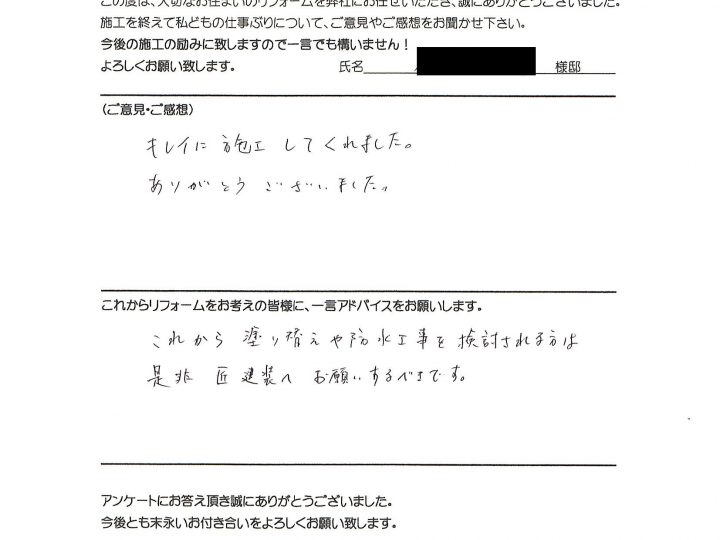 この度は、大切なお住まいのリフォームを弊社にお任せいただき、誠にありがとうございました。
施工を終えて私どもの仕事ぶりについて、ご意見やご感想をお聞かせ下さい。
今後の施工の励みに致しますので一言でも構いません！
よろしくお願い致します。 氏名 様邸
（ご意見・ご感想）
キレイに施工してくれました。
ありがとうございました。
これからリフォームをお考えの皆様に、一言アドバイスをお願いします。
これから塗り替えや防水工事を検討される方は
是非匠建装へお願いするべきです。
アンケートにお答え頂き誠にありがとうございました。
今後とも末永いお付き合いをよろしくお願い致します。